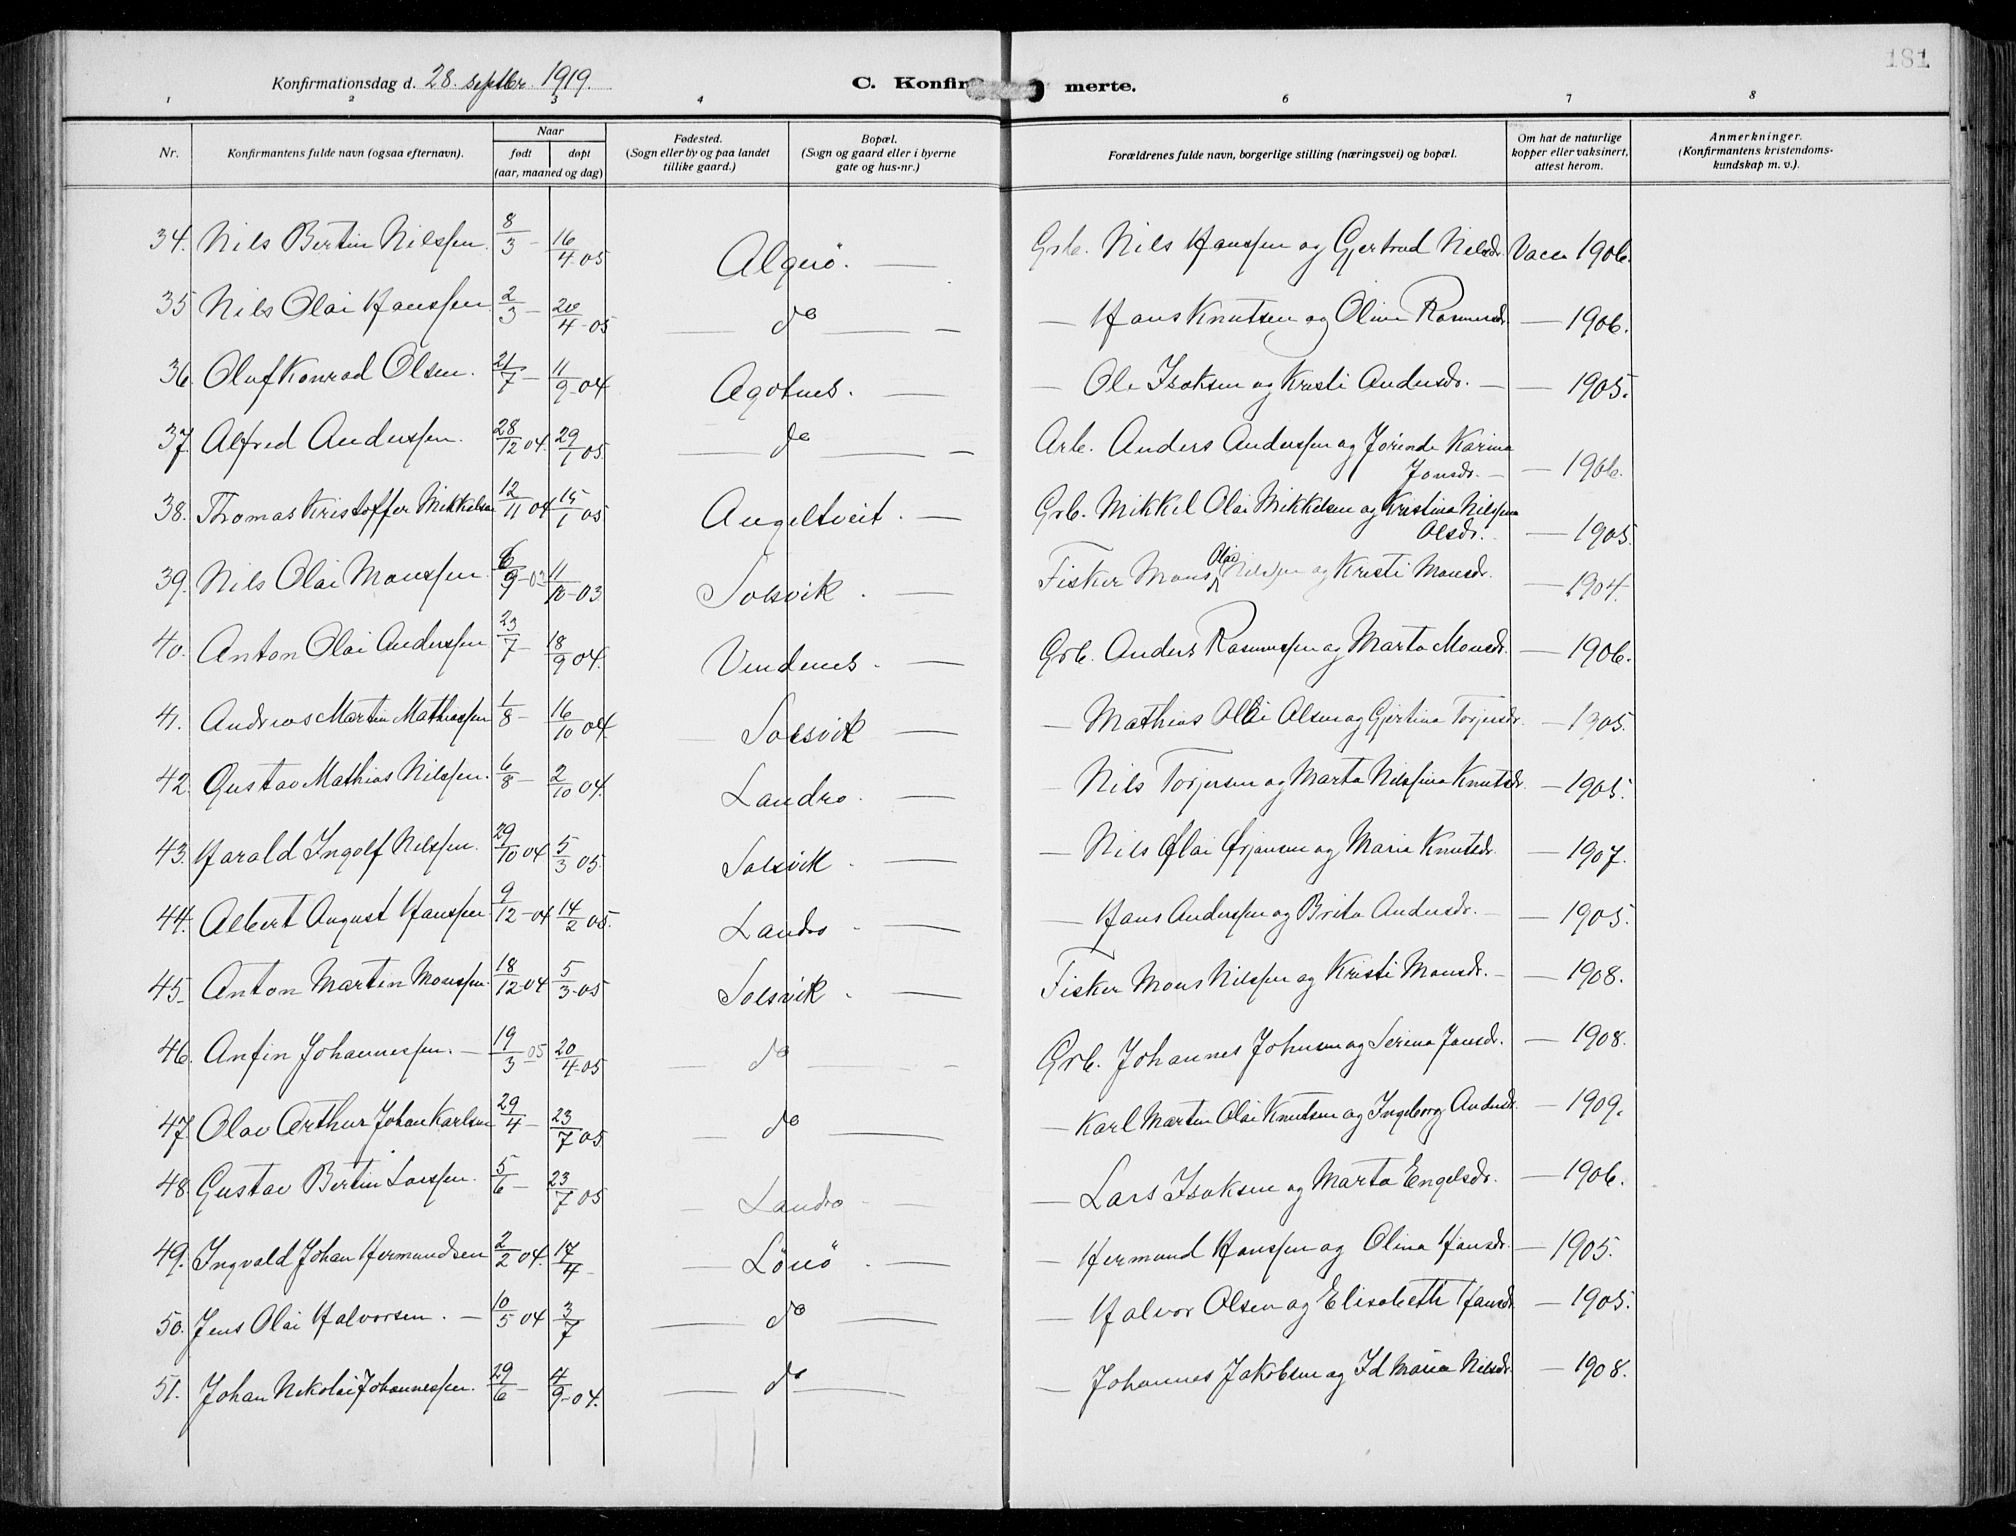 181
Konfirmationsdag d. 28. septbr. 1919.
C. Konfir merte.
1 2 3 4 6 7 8
Nr.
Konfirmantens fulde navn (ogsaa efternavn).
Naar
født døpt
(aar, maaned og dag)
Fødested.
(Sogn eller by og paa landet
tillike gaard.)
Bopæl.
(Sogn og gaard eller i byerne
gate og hus-nr.)
Forældrenes fulde navn, borgerlige stilling (næringsvei) og bopæl.
Om hat de naturlige
kopper eller vaksinert,
attest herom.
Anmerkninger.
(Konfirmantens kristendoms-
kundskap m. v.).
34. Nils Bertin Nilssen. 8/3 – 16/4 05 Algerö. — Grb. Nils Hanssen og Gjertrud Nilsdr. Vacc 1906.
35 Nils Olai Hanssen 2/3 – 20/4 –05 — do — — Hans Knutsen og Oline Rasmusdr. — 1906.
36. Oluf Konrad Olsen. 21/7 – 11/9 –04 Agotnes. — — Ole Isaksen og Kristi Andersdr. — — 1905.
37. Alfred Anderssen. 28/12 04. 29/1 05. — do — — Arb. Anders Anderssen og Jørende Karina
Jonsdr. — — 1906.
38. Thomas Kristoffer Mikkelsen 12/11 04 15/1 05 Angeltveit. — Grb. Mikkel Olai Mikkelsen og Kristina Nilssina
Olsdr. — 1905.
39. Nils Olai Monssen. 6/9 –03 11/10 –03 Solsvik. — Fisker Mons Olai Nilssen og Kristi Monsdr. — 1904.
40. Anton Olai Anderssen 23/7 – 18/9 04. Vindenes. — Grb. Anders Rasmussen og Marta Monsdr. — 1906.
41. Andreas Martin Mathiassen 1/8 – 16/10 04. — Solsvik — — Mathias Olai Olsen og Gjertina Torjersdr. — 1905.
42. Gustav Mathias Nilssen. 6/8 – 2/10 04. Landro. — — Nils Torjersen og Marta Nilssina Knutsdr. — 1905.
43. Harald Ingolf Nilssen. 29/10 04 5/3 05. Solsvik. — — Nils Olai Ørjansen og Maria Knutsdr. — 1907.
44. Albert August Hanssen 9/12 –04 14/2 05. Landro. — — Hans Anderssen og Brita Andersdr. — — 1905.
45. Anton Martin Monssen. 18/12 04 5/3 –05 Solsvik. — Fisker Mons Nilssen og Kristi Monsdr. — — 1908.
46. Anfin Johannessen. — 19/3 05 20/4 –05 — do — — Grb. Johannes Johnsen og Serina Jansdr. — 1908.
47. Olav Arthur Johan Karlsen 29/4 – 23/7 05 — do — — Karl Martin Olai Knutsen og Ingeborg Andersdr. — 1909.
48. Gustav Bertin Larssen. 5/6 – 23/7 05 — Landro — — Lars Isaksen og Marta Engelsdr. — 1906.
49. Ingvald Johan Hermundsen 2/2 04. 17/4 – — Lönö. — — Hermund Hanssen og Olina Hansdr. — 1905.
50. Jens Olai Halvorsen. — 10/5 04 3/7 — do — — Halvor Olsen og Elisabeth Hansdr. — 1905.
51. Johan Nikolai Johannessen. 29/6 – 4/9 –04. — do — — Johannes Jakobsen og Id Maria Nilsdr. — 1908.